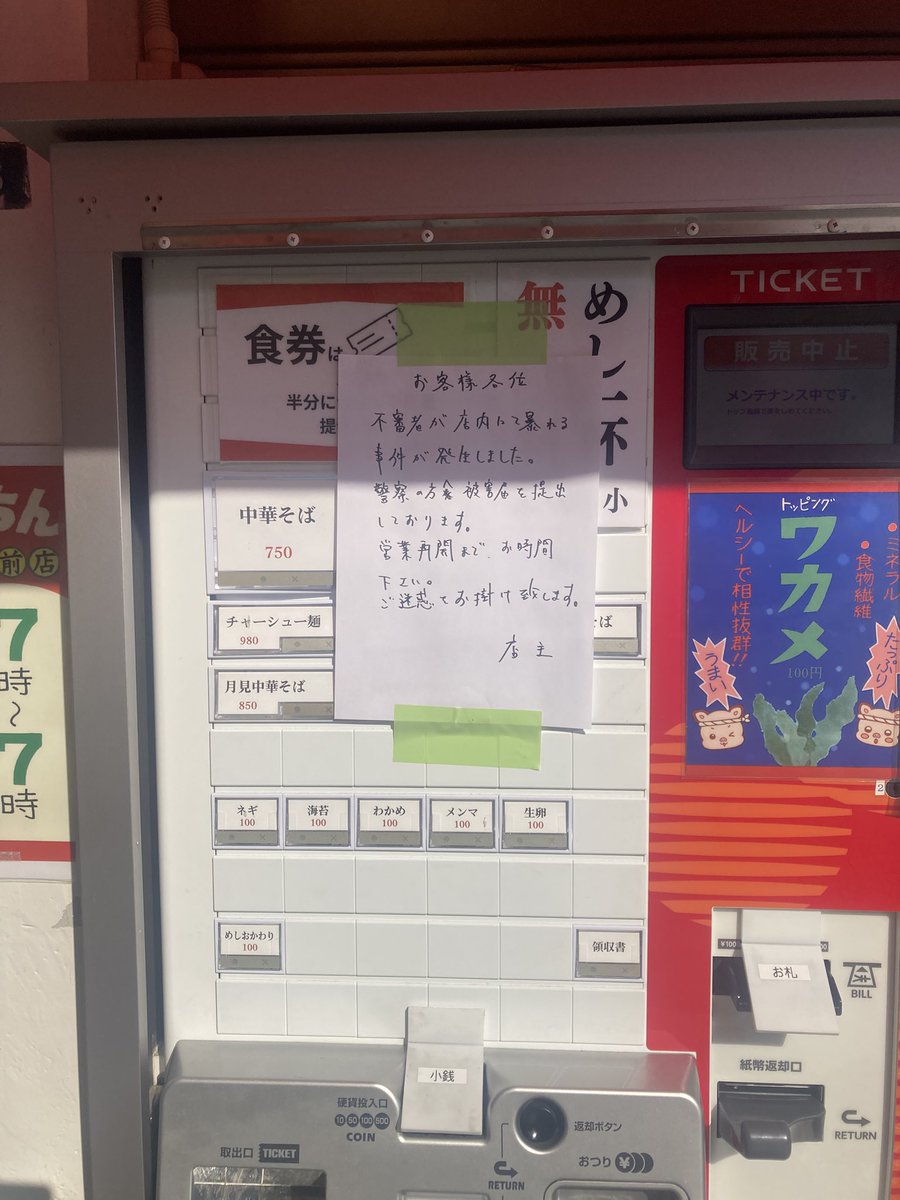 TICKET
販売中止
メンテナンス中です。
食券は
半分に
提
無
めし
不
小
お客様各位
不審者が店内にて暴れる
事件が発生しました。
警察の方へ被害届を提出
しております。
営業再開まで、お時間
下さい。
ご迷惑をお掛け致します。
店主
中華そば
750
チャーシュー麺
980
そば
月見中華そば
850
ネギ
100
海苔
100
わかめ
100
メンマ
100
生卵
100
めしおかわり
100
領収書
トッピング
ワカメ
100円
ヘルシーで相性抜群!!
・ミネラル
・食物繊維
たっぷり
うまい
ちん
前店
7
時
〜
7
時
2
¥100
お札
BILL
紙幣返却口
RETURN
小銭
硬貨投入口
10 50 100 500
COIN
返却ボタン
取出口 TICKET
RETURN
おつり ¥